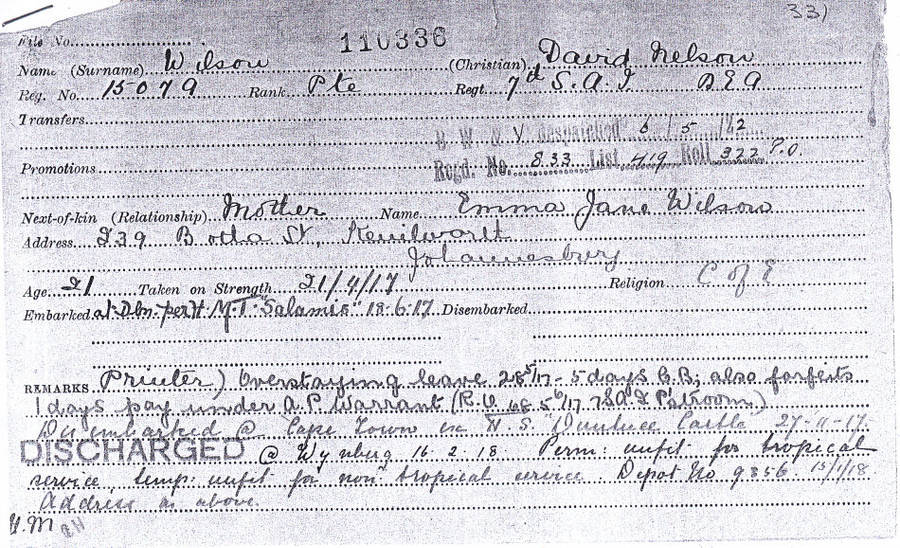 331
File No. 110336
Name (Surname) Wilson (Christian) David Nelson
Reg. No. 15079 Rank Pte Regt. 7th S.A.I. B E A
Transfers
B. W. & V despatched 6/5/42
Regd. No. 833 List 419 Roll 322 P.O.
Promotions
Next-of-kin (Relationship) Mother Name Emma Jane Wilson
Address 239 Botha St, Kenilworth
Johannesburg
Age 21 Taken on Strength 21/4/17 Religion C of E
Embarked at Dbn. per H.M.T. "Salamis" 18-6-17 Disembarked
REMARKS Printer) Overstaying leave 28/5/17 - 5 days C.B; also forfeits
1 days pay under A.P. Warrant (R.O. 5/6/17 7 S.A.I. Potchefstroom)
Disembarked @ Cape Town ex H.S. "Dunluce Castle" 27-11-17.
DISCHARGED @ Wynberg 16-2-18 Perm: unfit for tropical
service temp: unfit for non tropical service Depot No 9856 15/1/18
Address as above